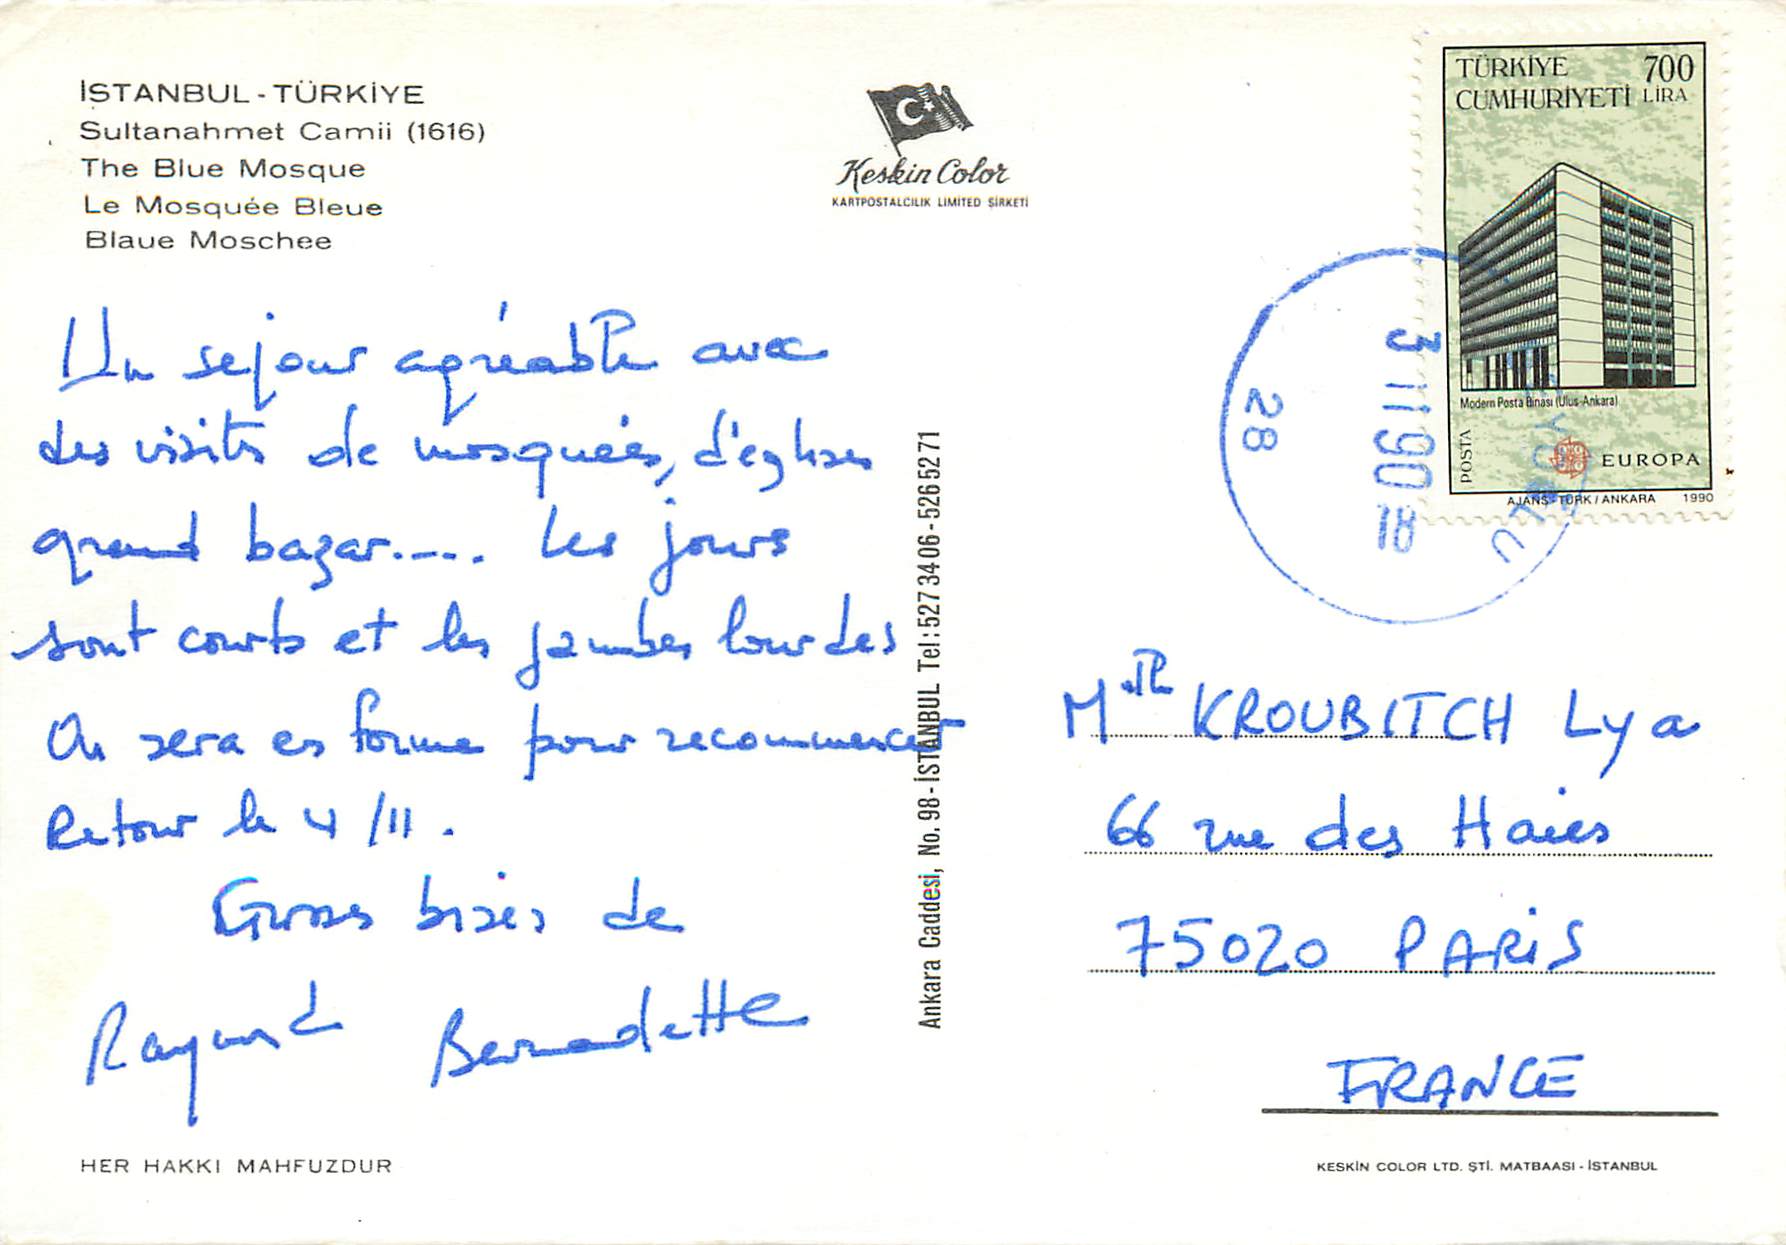 İSTANBUL - TÜRKİYE
Sultanahmet Camii (1616)
The Blue Mosque
Le Mosquée Bleue
Blaue Moschee
Keskin Color
KARTPOSTALCILIK LIMITED ŞİRKETİ
TÜRKİYE 700
CUMHURİYETİ LİRA
Modern Posta Binası (Ulus-Ankara)
POSTA
EUROPA
AJANS-TÜRK / ANKARA 1990
28
3 11 90
18
Un séjour agréable avec
des visites de mosquées, d'églises
grand bazar..... Les jours
sont courts et les jambes lourdes
On sera en forme pour recommencer
Retour le 4/11.
Grosses bises de
Raymond Bernadette
Ankara Caddesi, No. 98 - İSTANBUL Tel: 527 34 06 - 526 52 71
Melle KROUBITCH Lya
66 rue des Haies
75020 PARIS
FRANCE
HER HAKKI MAHFUZDUR
KESKİN COLOR LTD. ŞTİ. MATBAASI - İSTANBUL